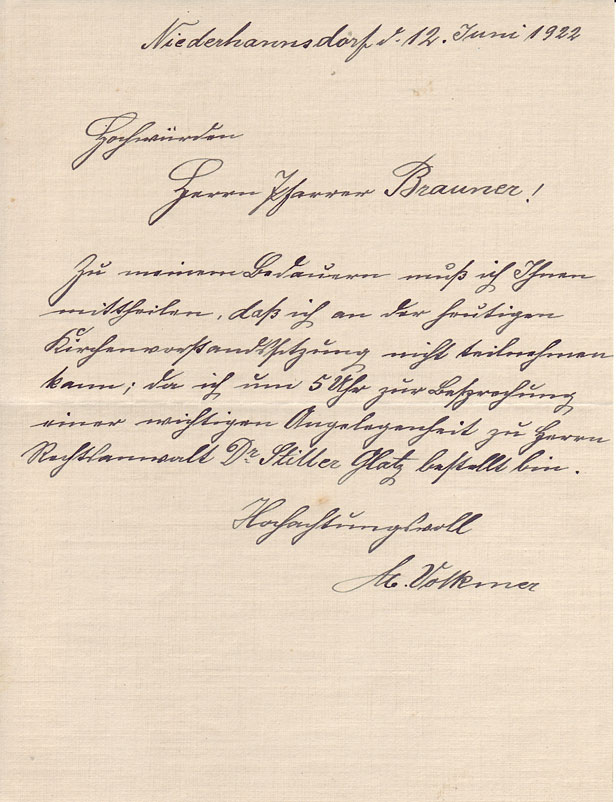 Niederhannsdorf d. 12. Juni 1922
Hochwürden
Herrn Pfarrer Brauner!
Zu meinem Bedauern muß ich Ihnen
mittheilen, daß ich an der heutigen
Kirchenvorstandssitzung nicht teilnehmen
kann; da ich um 5 Uhr zur Besprechung
einer wichtigen Angelegenheit zu Herrn
Rechtsanwalt Dr Stiller Glatz bestellt bin.
Hochachtungsvoll
A. Volkmer